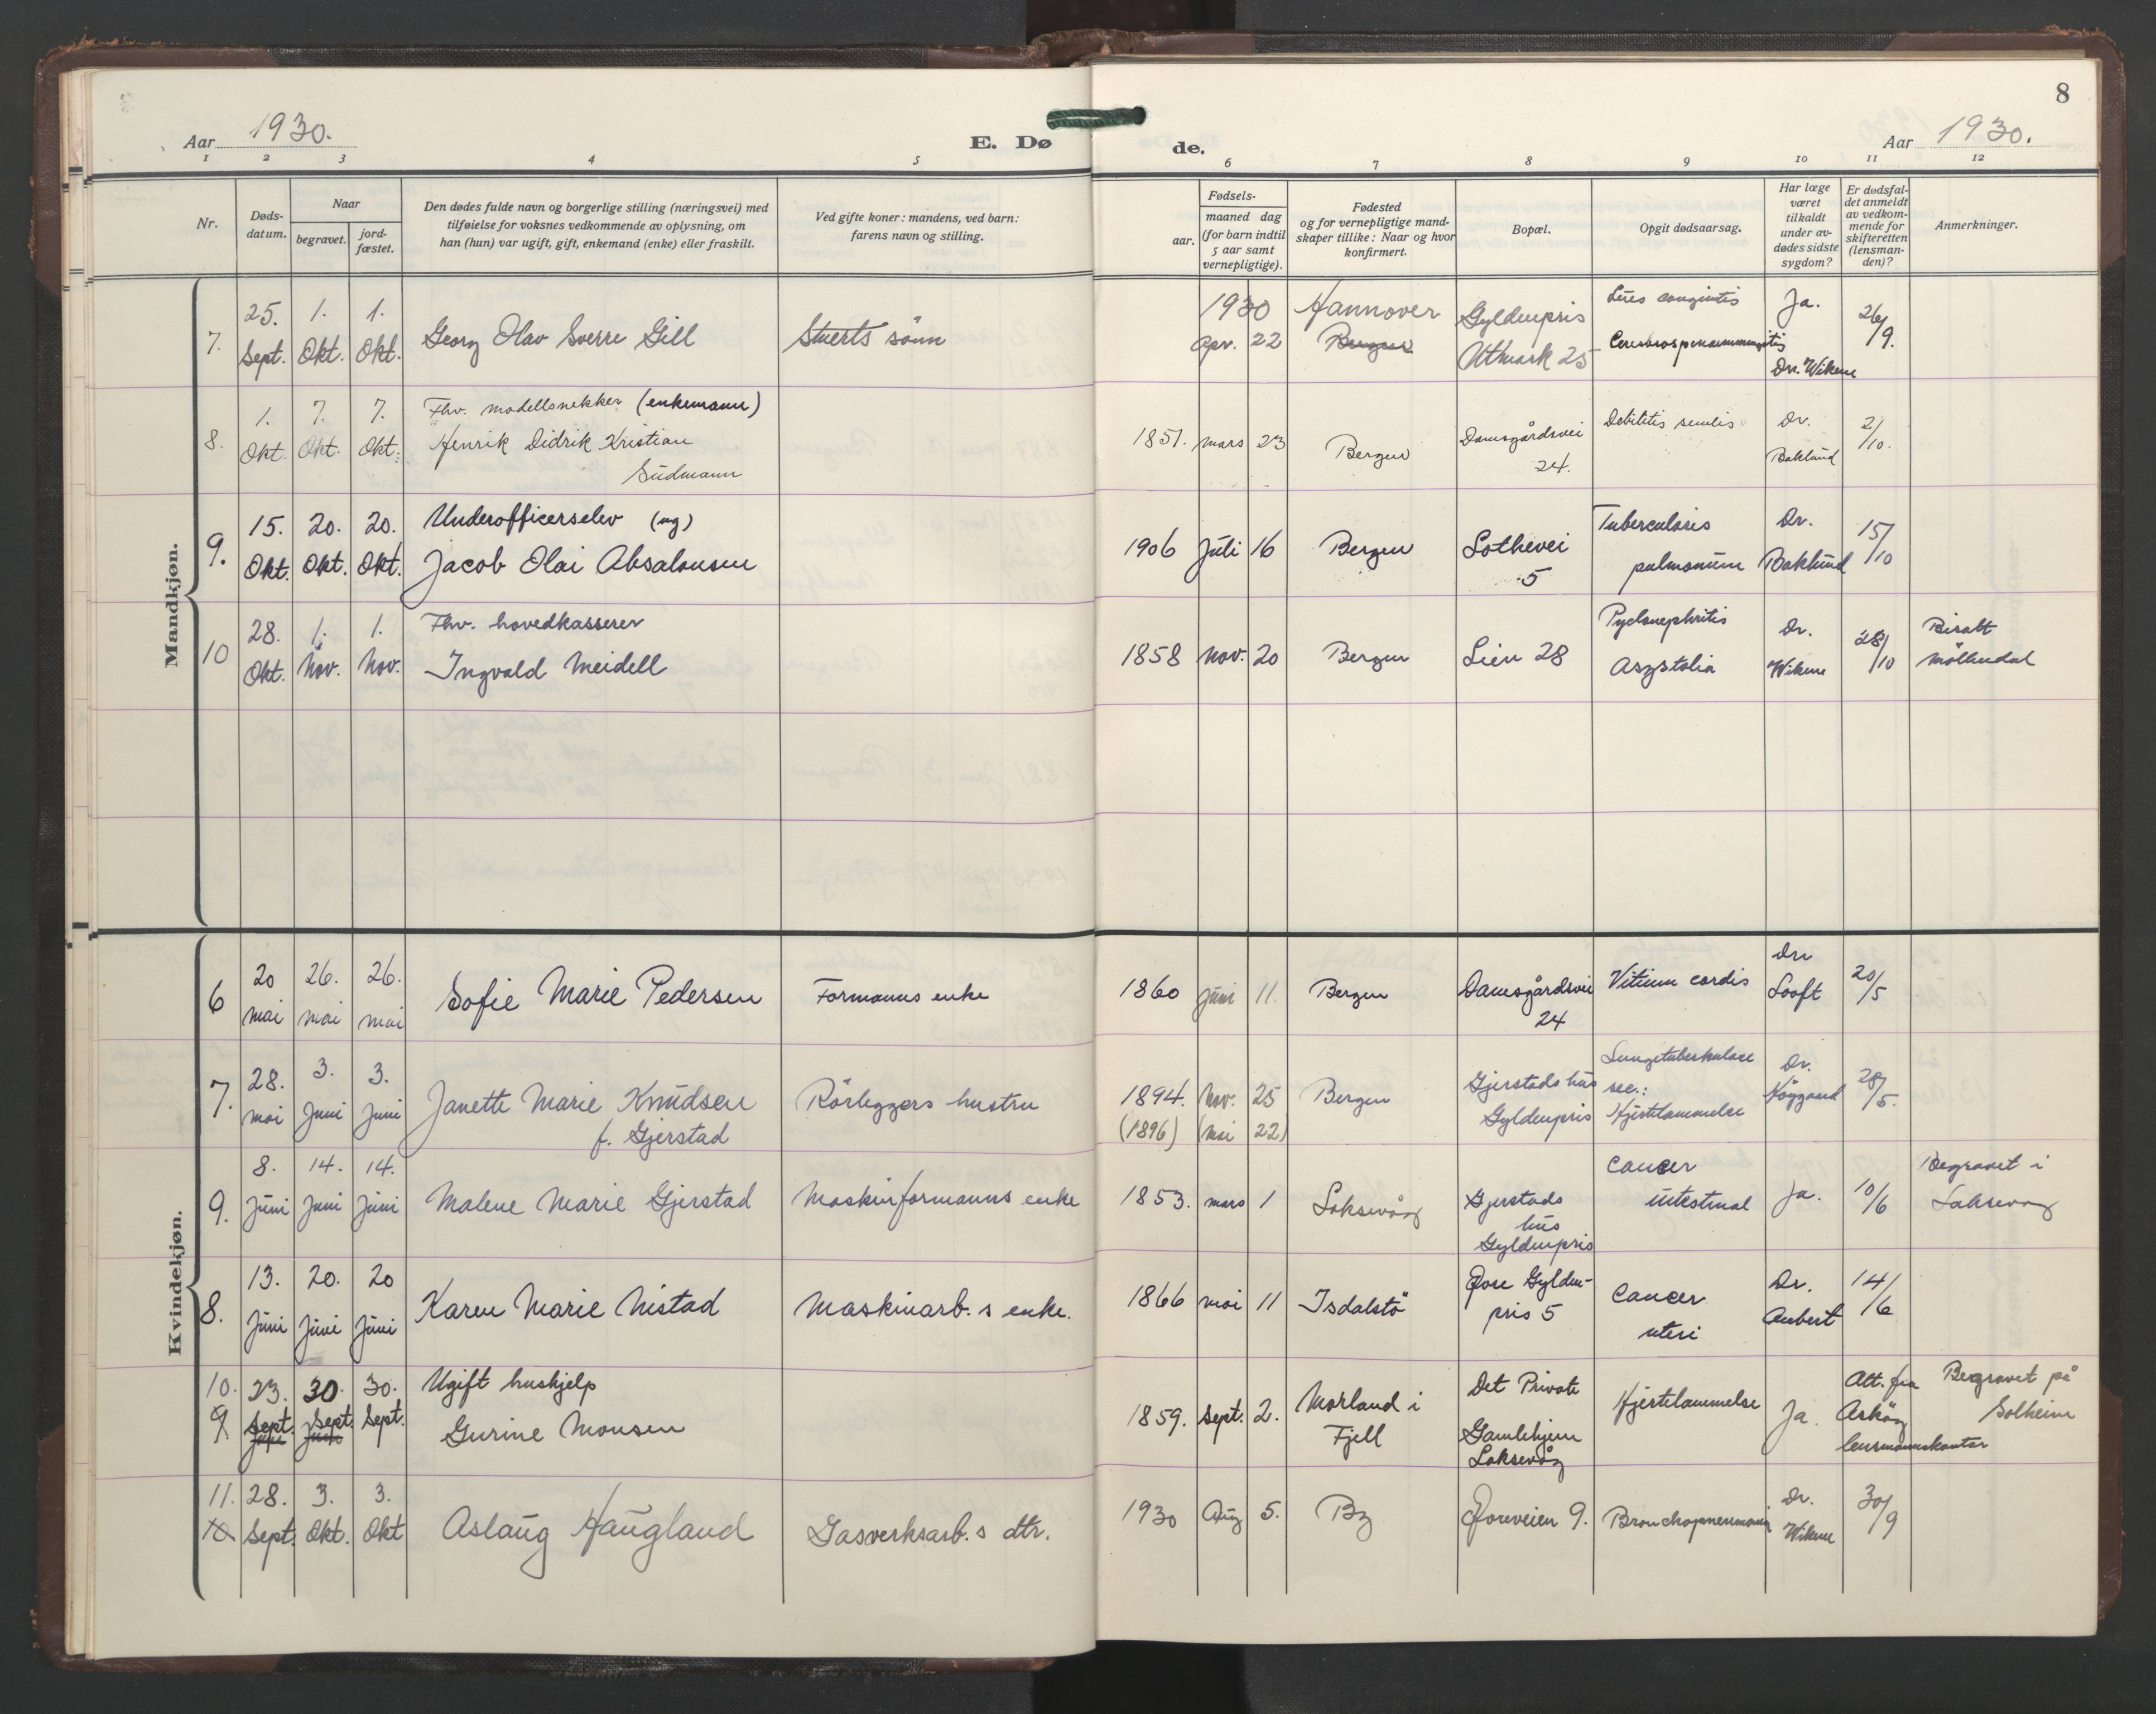 8
Aar 1930.
E. Dø
de.
Aar 1930.
1 2 3 4 5 6 7 8 9 10 11 12
Nr.
Døds-
datum.
Naar
begravet.
jord-
fæstet.
Den dødes fulde navn og borgerlige stilling (næringsvei) med
tilføielse for voksnes vedkommende av oplysning, om
han (hun) var ugift, gift, enkemand (enke) eller fraskilt.
Ved gifte koner: mandens, ved barn:
farens navn og stilling.
Fødsels-
aar.
maaned dag
(for barn indtil
5 aar samt
vernepligtige).
Fødested
og for vernepligtige mand-
skaper tillike: Naar og hvor
konfirmert.
Bopæl.
Opgit dødsaarsag.
Har læge
været
tilkaldt
under av-
dødes sidste
sygdom?
Er dødsfal-
det anmeldt
av vedkom-
mende for
skifteretten
(lensman-
den)?
Anmerkninger.
Mandkjøn.
7. 25. Sept. 1. Okt. 1. Okt.
Georg Olav Sverre Gill
Stuerts sönn
1930 Apr. 22
Hannover
Bergen
Gyldenpris
Utmark 25
Lues
Ja.
Dr. Wikene
26/9.
8. 1. Okt. 7. Okt. 7. Okt.
Fhv. modellsnekker (enkemann)
Henrik Didrik Kristian
Sudmann
1851. mars 23
Bergen
Damsgårdsvei
24.
Debilitis senilis
Dr.
Baklund
2/10.
9. 15. Okt. 20. Okt. 20. Okt.
Underofficerselev (ug)
Jacob Olai Absalonsen
1906 Juli 16
Bergen
Lothevei
5
Tuberculosis
pulmonum
Dr.
Baklund
15/10
10 28. Okt. 1. Nov. 1. Nov.
Fhv. hovedkasserer
Ingvald Meidell
1858 Nov. 20
Bergen
Lien 28
Pyelonephritis
Asystolia
Dr.
Wikene
28/10
Bisatt
Möllendal
Kvindekjøn.
6 20 mai 26. mai 26. mai
Sofie Marie Pedersen
Formanns enke
1860 Juni 11.
Bergen
Damsgårdsvei
24
Vitium cordis
Dr.
Looft
20/5
7. 28. mai 3. Juni 3. Juni
Janette Marie Knudsen
f. Gjerstad
Rörleggers hustru
1894. Nov. 25
(1896) (mai 22)
Bergen
Gjerstads hus
Gyldenpris
Lungetuberkulose
sec.:
Hjertelammelse
Dr.
28/5.
9. 8. Juni 14. Juni 14. Juni
Malene Marie Gjerstad
Maskinformanns enke
1853. mars 1
Laksevåg
Gjerstads
hus
Gyldenpris
Cancer
intestinal
Ja.
10/6
Begravet i
Laksevåg
8. 13. Juni 20. Juni 20 Juni
Karen Marie Nistad
Maskinarb.s enke.
1866 mai 11
Isdalstö
Øvre Gylden-
pris 5
Cancer
uteri
Dr.
Aubert
14/6
10. 9 23. Sept. Juni 30. Sept. Juni 30. Sept.
Ugift hushjelp
Gurine Monsen
1859. Sept. 2.
Morland i
Fjell
Det Private
Gamlehjem
Laksevåg
Hjertelammelse
Ja
Att. fra
Askøy
lensmannskontor
Begravet på
Solheim
11. 10 28. Sept. 3. Okt. 3. Okt
Aslaug Haugland
Gasverksarb.s dtr.
1930 Aug 5.
Bg
9.
Bronchopneumonia
Dr.
Wikene
30/9